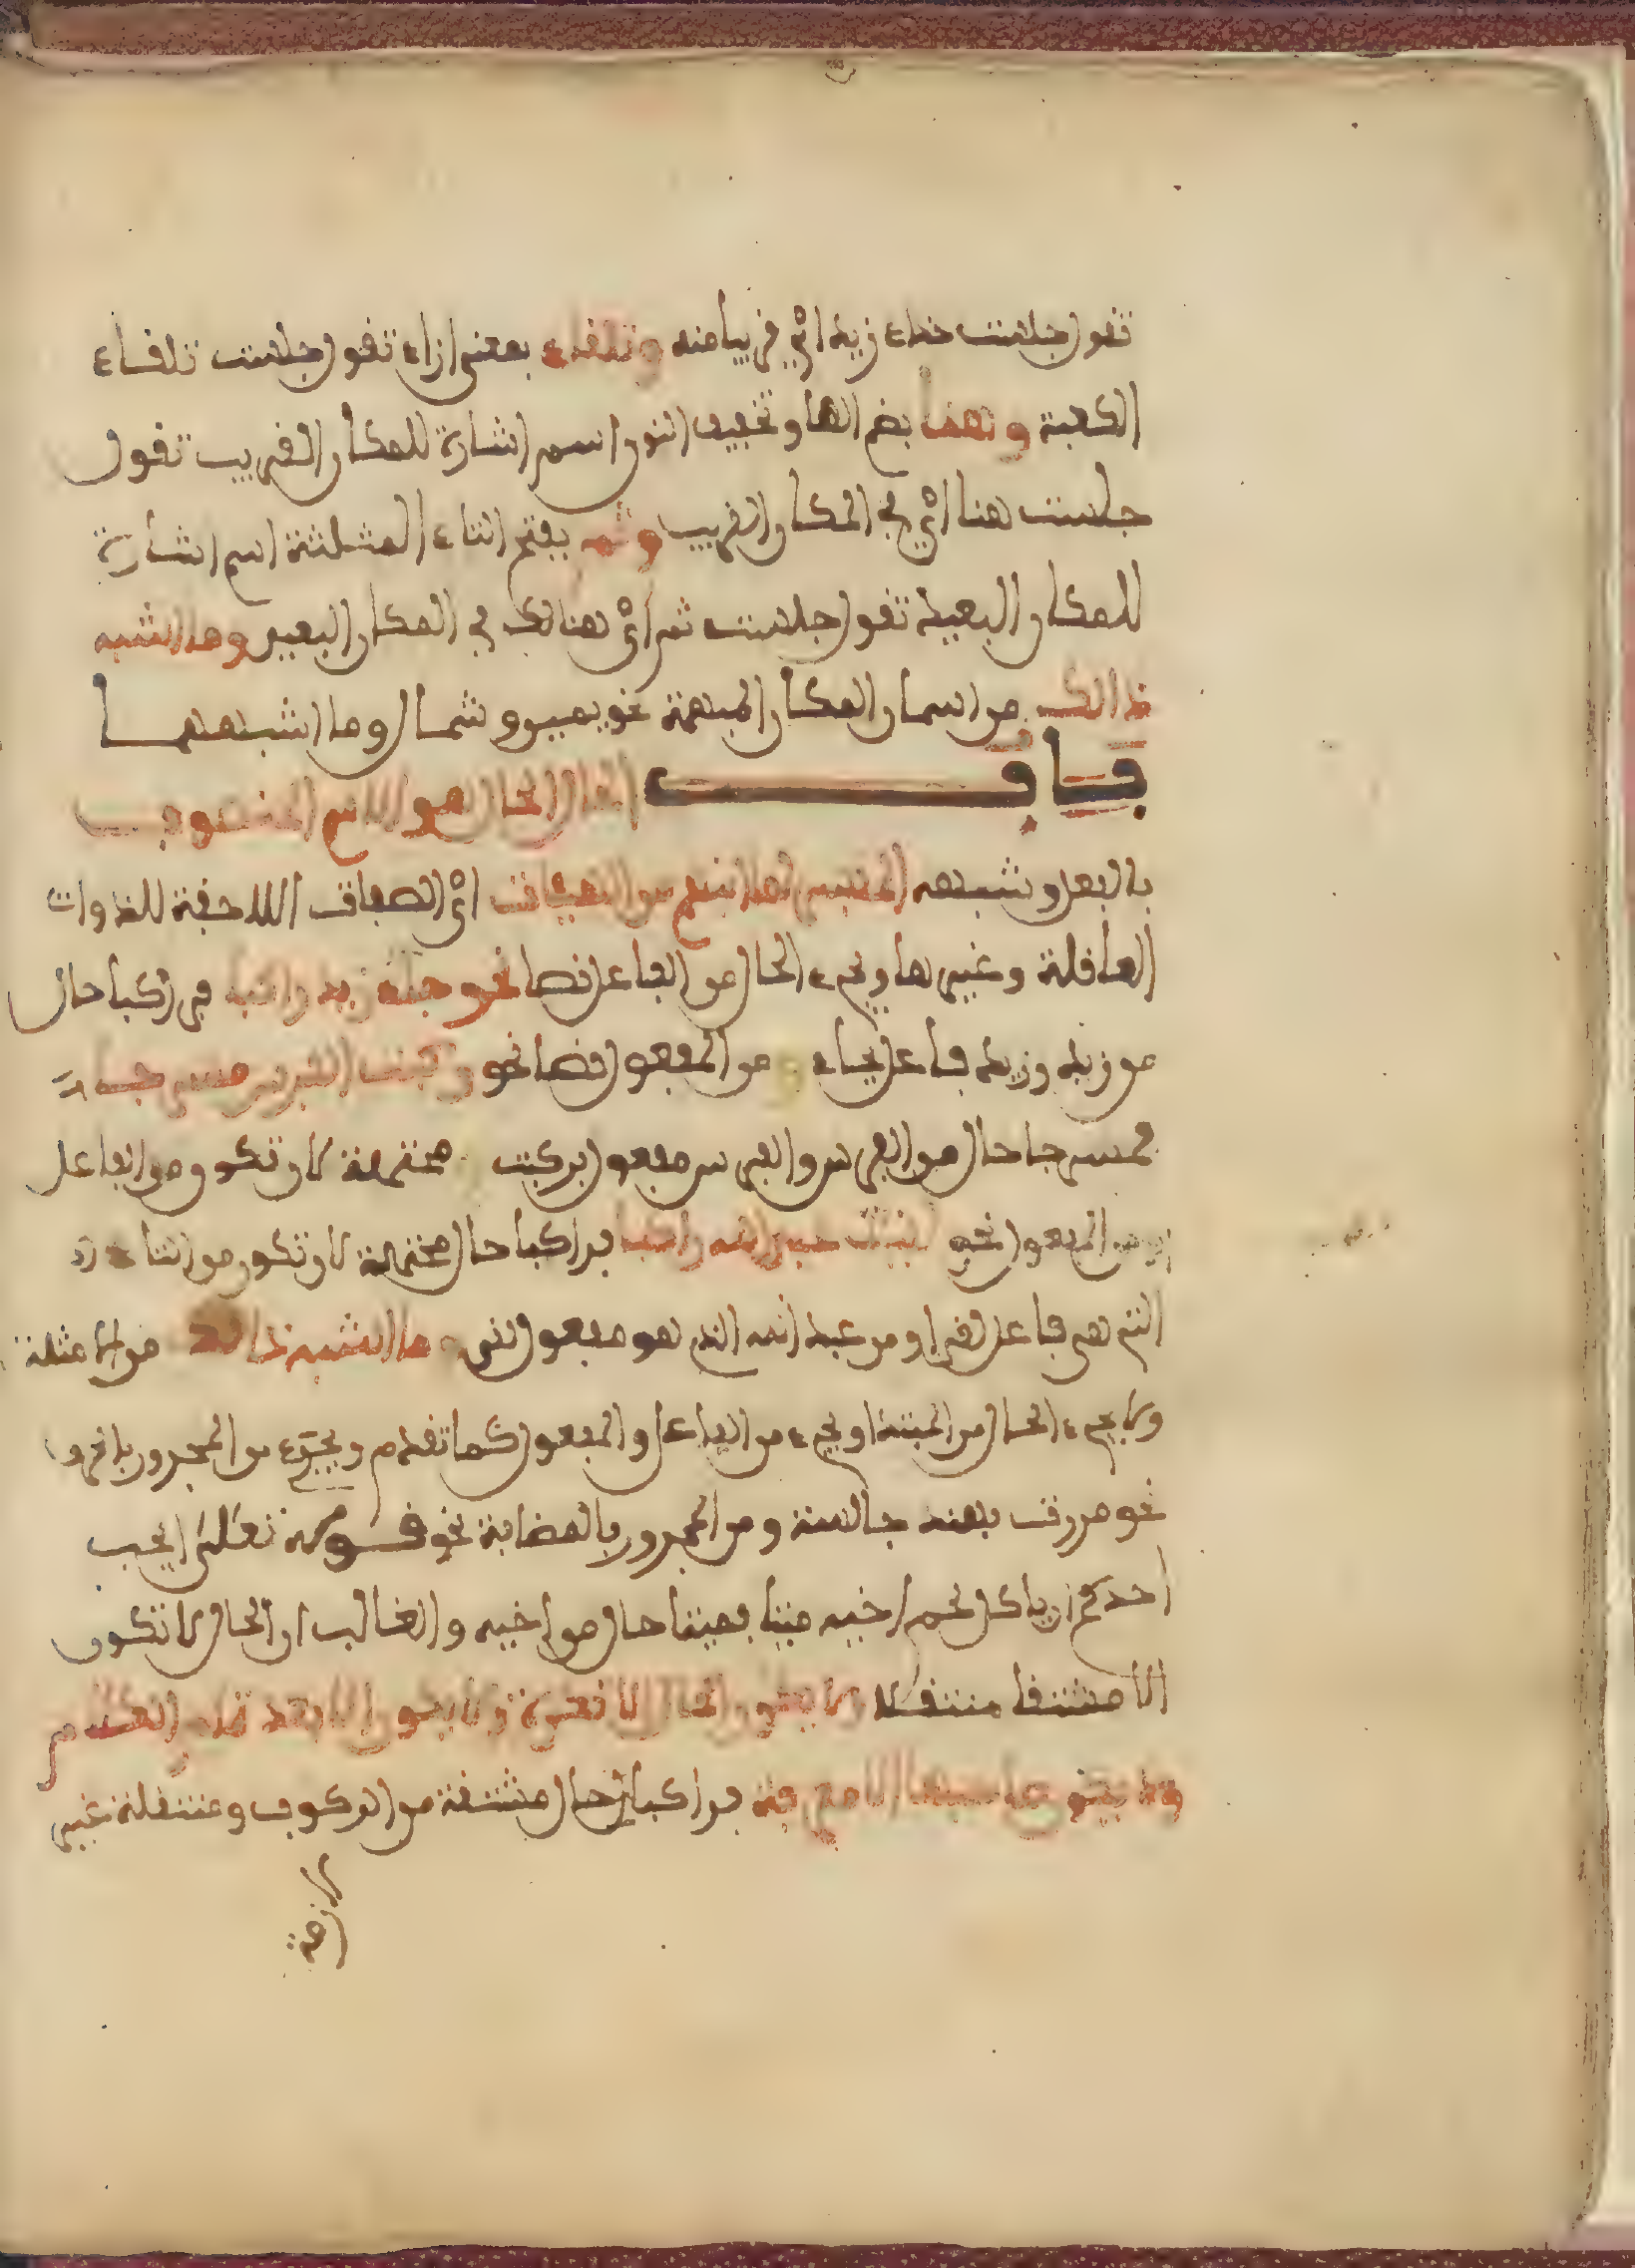 تقول جلست حذاء زيد اي قريبا منه وتلقاء بمعنى ازاء تقول جلست تلقاء
الكعبة وهنا بضم الها وتخفيف النون اسم اشارة للمكان القريب تقول
جلست هنا اي في المكان القريب وثم بفتح الثاء المثلثة اسم اشارة
للمكان البعيد تقول جلست ثم اي هنالك في المكان البعيد وما اشبه
ذالك من اسما المكان المبهمة نحو يمين وشمال وما اشبههما
باب الحال الحال هو الاسم المنصوب
بالفعل وشبهه المفسر لما انبهم من الهيئات اي الصفات اللاحقة للذوات
العاقلة وغيرها ويجيء الحال من الفاعل نصا نحو جاء زيد راكبا فراكبا حال
من زيد وزيد فاعل بجاء و من المفعول نصا نحو ركبت الفرس مسرجا
فمسرجا حال من الفرس والفرس مفعول بركبت محتملة لان تكون من الفاعل
ومن المفعول نحو لقيت عبد الله راكبا فراكبا حال محتملة لان تكون من التاء
التي هي فاعل لقي او من عبد الله الذي هو مفعول لقي وما اشبه ذالك من الامثلة
ولا يجيء الحال من المبتدا ويجيء من الفاعل والمفعول كما تقدم ويجيء من المجرور بالحرف
نحو مررت بهند جالسة ومن المجرور بالمضاف نحو قوله تعلى ايحب
احدكم ان ياكل لحم اخيه ميتا فميتا حال من اخيه والغالب ان الحال لا تكون
الا مشتقا منتقلا ولا يكون الحال الا نكرة ولا يكون الا بعد تمام الكلام
ولا يكون صاحبها الا معرفة فراكبا حال مشتقة من الركوب ومنتقلة غير
لازمة